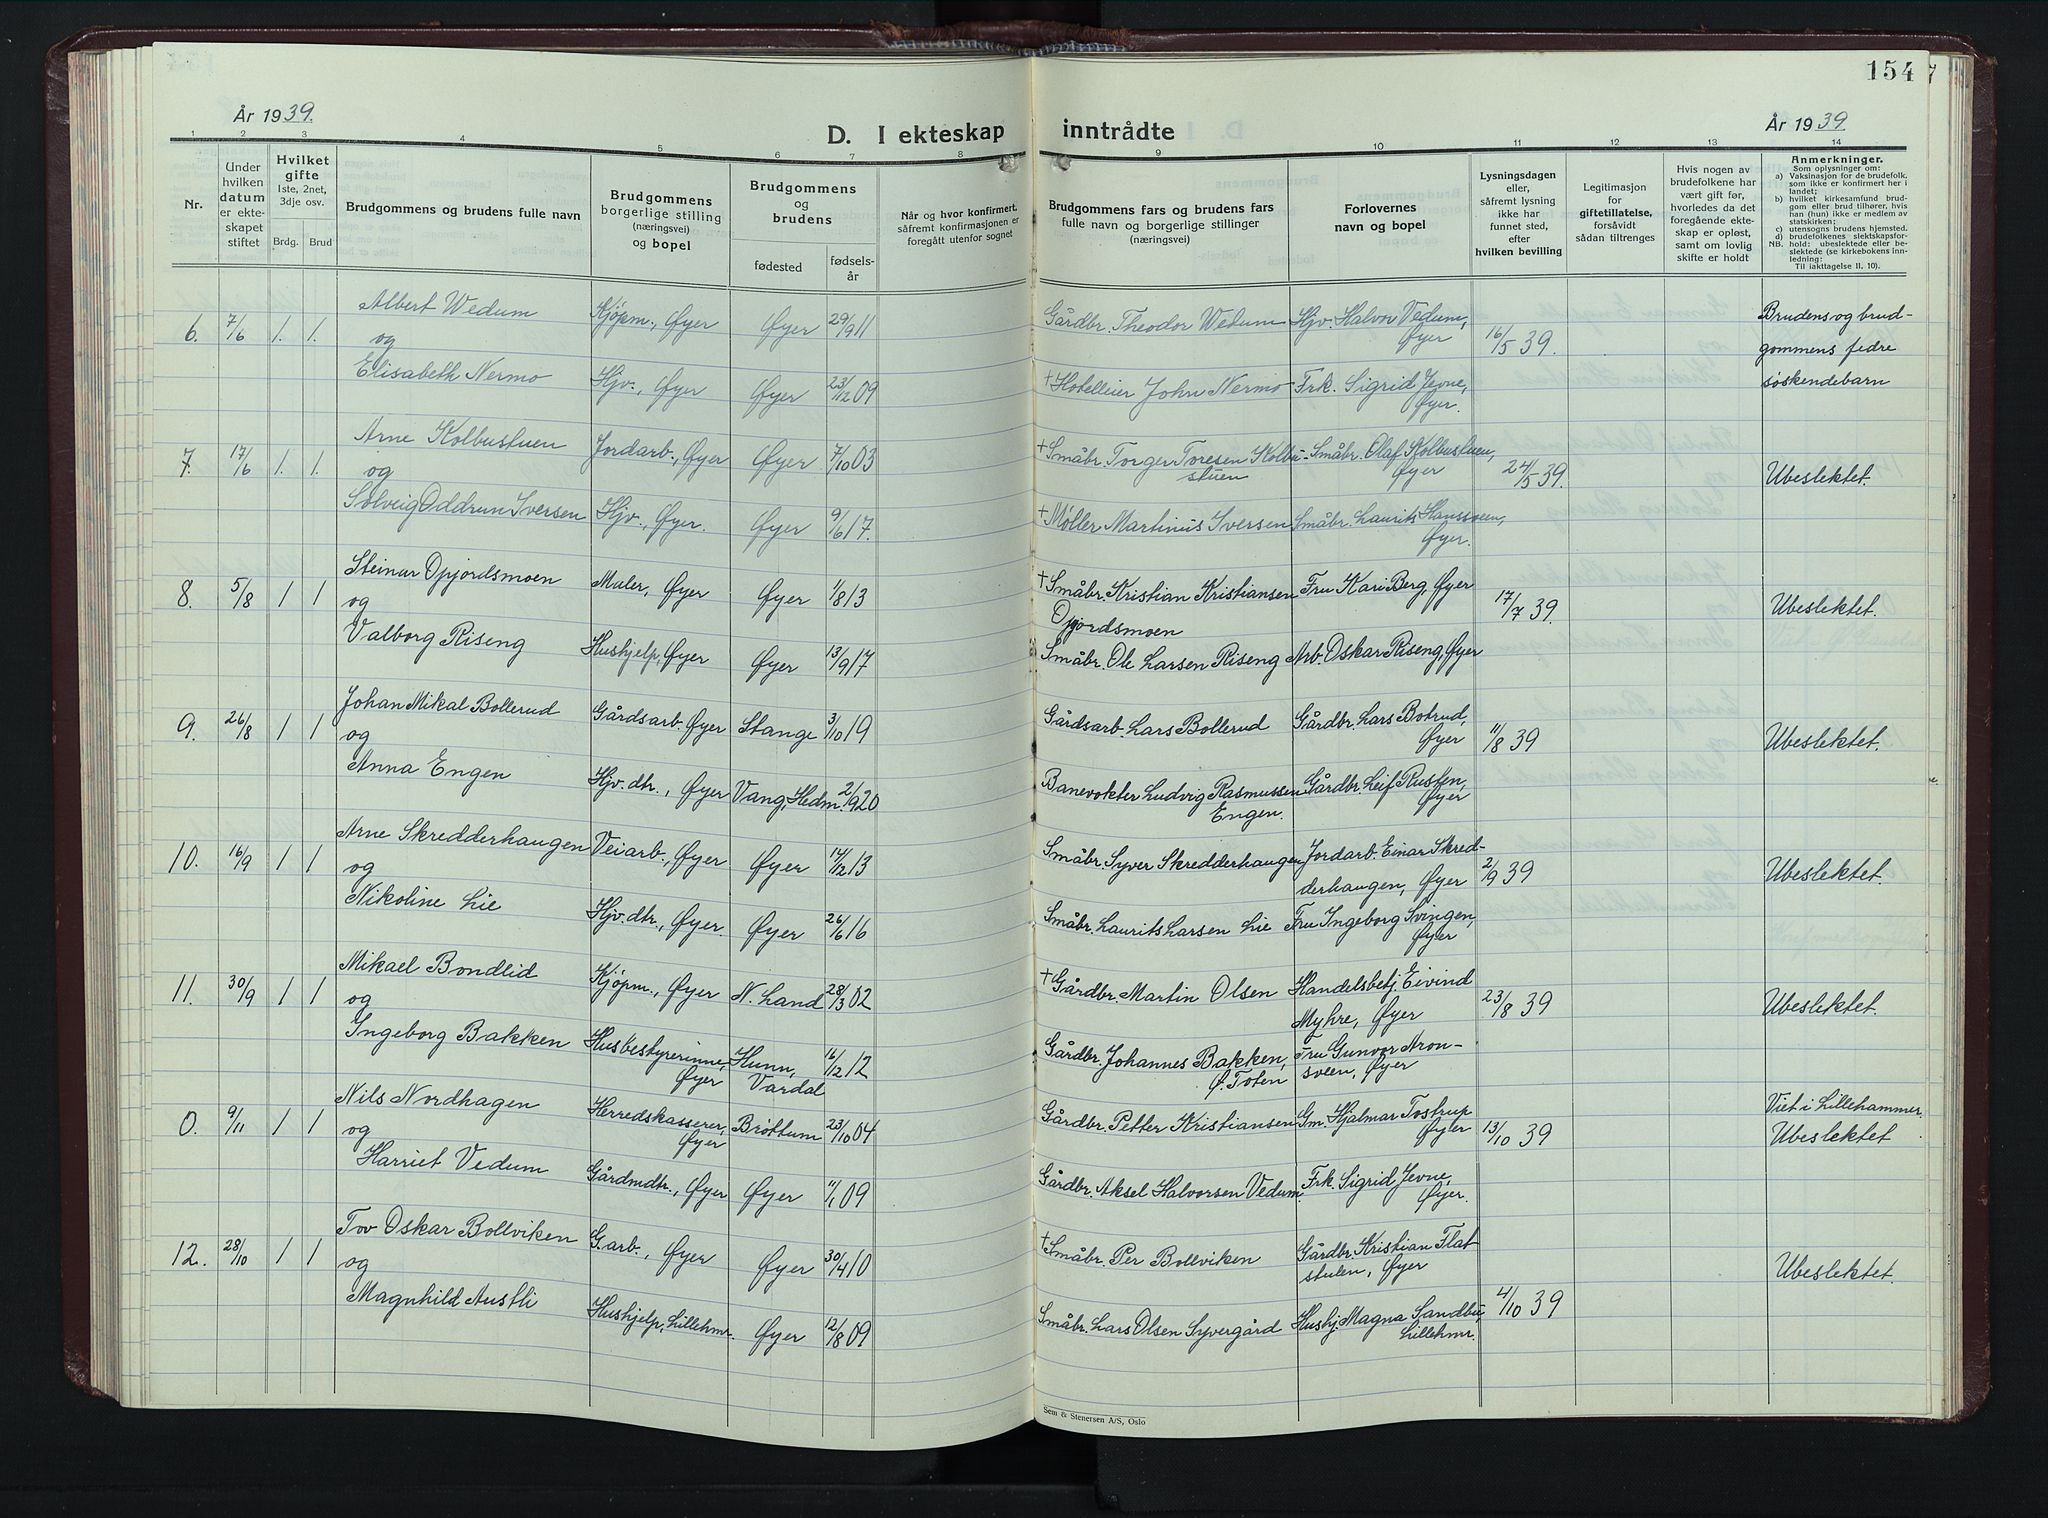 154
År 1939.
D. I ekteskap inntrådte
År 1939.
1 2 3 4 5 6 7 8 9 10 11 12 13 14
Nr.
Under hvilken datum er ekteskapet stiftet
Hvilket gifte 1ste, 2net, 3dje osv.
Brdg. Brud
Brudgommens og brudens fulle navn
Brudgommens borgerlige stilling (næringsvei) og bopel
Brudgommens og brudens
fødested
fødselsår
Når og hvor konfirmert, såfremt konfirmasjonen er foregått utenfor sognet
Brudgommens fars og brudens fars fulle navn og borgerlige stillinger (næringsvei)
Forlovernes navn og bopel
Lysningsdagen eller, såfremt lysning ikke har funnet sted, efter hvilken bevilling
Legitimasjon for giftetillatelse, forsåvidt sådan tiltrenges
Hvis nogen av brudefolkene har vært gift før, hvorledes da det foregående ekteskap er opløst, samt om lovlig skifte er holdt
Anmerkninger.
Som oplysninger om:
a) Vaksinasjon for de brudefolk, som ikke er konfirmert her i landet;
b) hvilket kirkesamfund brudgom eller brud tilhører, hvis han (hun) ikke er medlem av statskirken;
c) utensogns brudens hjemsted.
d) brudefolkenes slektskapsforhold: ubeslektede eller beslektede (se kirkebokens innledning:
NB.
Til iakttagelse II, 10).
6. 7/6 1. 1. Albert Wedum Kjøpm., Øyer Øyer 29/9 11 Gårdbr. Theodor Wedum Hjv. Halvor Vedum, Øyer 16/5 39. Brudens og brudgommens fedre søskendebarn
og
Elisabeth Nermo Hjv., Øyer Øyer 23/12 09 † Hotelleier John Nermo Frk. Sigrid Jevne, Øyer.
7. 17/6 1. 1. Arne Kolbustuen Jordarb., Øyer Øyer 7/10 03 † Småbr. Torger Toresen Kolbustuen Småbr. Olaf Kolbustuen, Øyer 24/5 39. Ubeslektet.
og
Solveig Oddrun Iversen Hjv., Øyer. Øyer 9/6 17. † Møller Martinus Iversen Småbr. Laurits Hanssveen, Øyer.
8. 5/8 1 1 Steinar Opjordsmoen Maler, Øyer Øyer 1/8 13 † Småbr. Kristian Kristiansen Opjordsmoen Fru Kari Berg, Øyer 17/7 39. Ubeslektet.
og
Valborg Riseng Hushjelp, Øyer Øyer 13/9 17 Småbr. Ole Larsen Riseng Arb. Oskar Riseng, Øyer
9. 26/8 1 1 Johan Mikal Bollerud Gårdsarb. Øyer Stange 3/10 19 Gårdsarb. Lars Bollerud Gårdbr. Lars Botrud, Øyer 11/8 39 Ubeslektet.
og
Anna Engen Hjv. dtr., Øyer Vang, Hedm. 2/9 20 Banevokter Ludvig Rasmussen Engen. Gårdbr. Leif Rusten, Øyer
10. 16/9 1 1 Arne Skredderhaugen Veiarb., Øyer Øyer 14/12 13 Småbr. Syver Skredderhaugen Jordarb. Einar Skredderhaugen, Øyer 2/9 39 Ubeslektet.
og
Nikoline Lie Hjv. dtr., Øyer. Øyer 26/6 16 Småbr. Laurits Larsen Lie Fru Ingeborg Svingen, Øyer
11. 30/9 1 1 Mikael Bondlid Kjøpm., Øyer N. Land 28/3 02 † Gårdbr. Martin Olsen Handelsbetj. Eivind Myhre, Øyer 23/8 39 Ubeslektet.
og
Ingeborg Bakken Husbestyrerinne, Øyer Hunn, Vardal 16/12 12 Gårdbr. Johannes Bakken, Ø. Toten Fru Gunvor Aronsveen, Øyer
0. 9/11 1 1 Nils Nordhagen Herredskasserer, Øyer Brøttum 23/10 04 Gårdbr. Petter Kristiansen Gm. Hjalmar Tostrup Øyer 13/10 39 Viet i Lillehammer. Ubeslektet
og
Harriet Vedum Gårdmdtr., Øyer Øyer 11/1 09 Gårdbr. Aksel Halvorsen Vedum. Frk. Sigrid Jevne, Øyer.
12. 28/10 1 1 Tov Oskar Bollviken G.arb., Øyer Øyer 30/4 10 † Småbr. Per Bollviken Gårdbr. Kristian Flatstulen, Øyer 4/10 39 Ubeslektet.
og
Magnhild Austli Hushjelp, Lillehmr. Øyer 12/8 09 Småbr. Lars Olsen Syvergård Hushj. Magna Sandbu, Lillehmr.
Sem & Stenersen A/S, Oslo